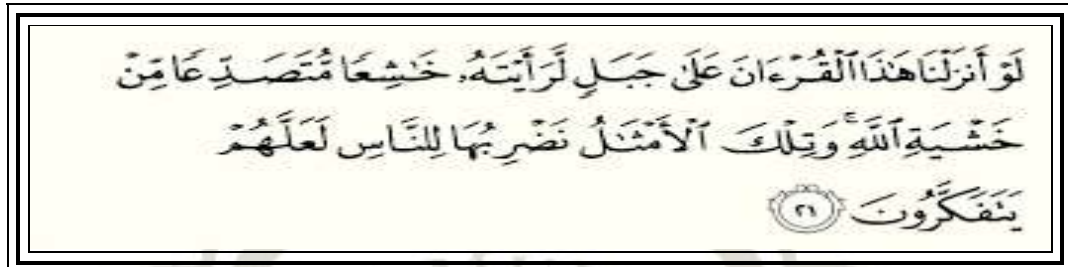 لَوْ أَنزَلْنَا هَٰذَا ٱلْقُرْءَانَ عَلَىٰ جَبَلٍ لَّرَأَيْتَهُۥ خَٰشِعًا مُّتَصَدِّعًا مِّنْ
خَشْيَةِ ٱللَّهِ ۚ وَتِلْكَ ٱلْأَمْثَٰلُ نَضْرِبُهَا لِلنَّاسِ لَعَلَّهُمْ
يَتَفَكَّرُونَ ٢١